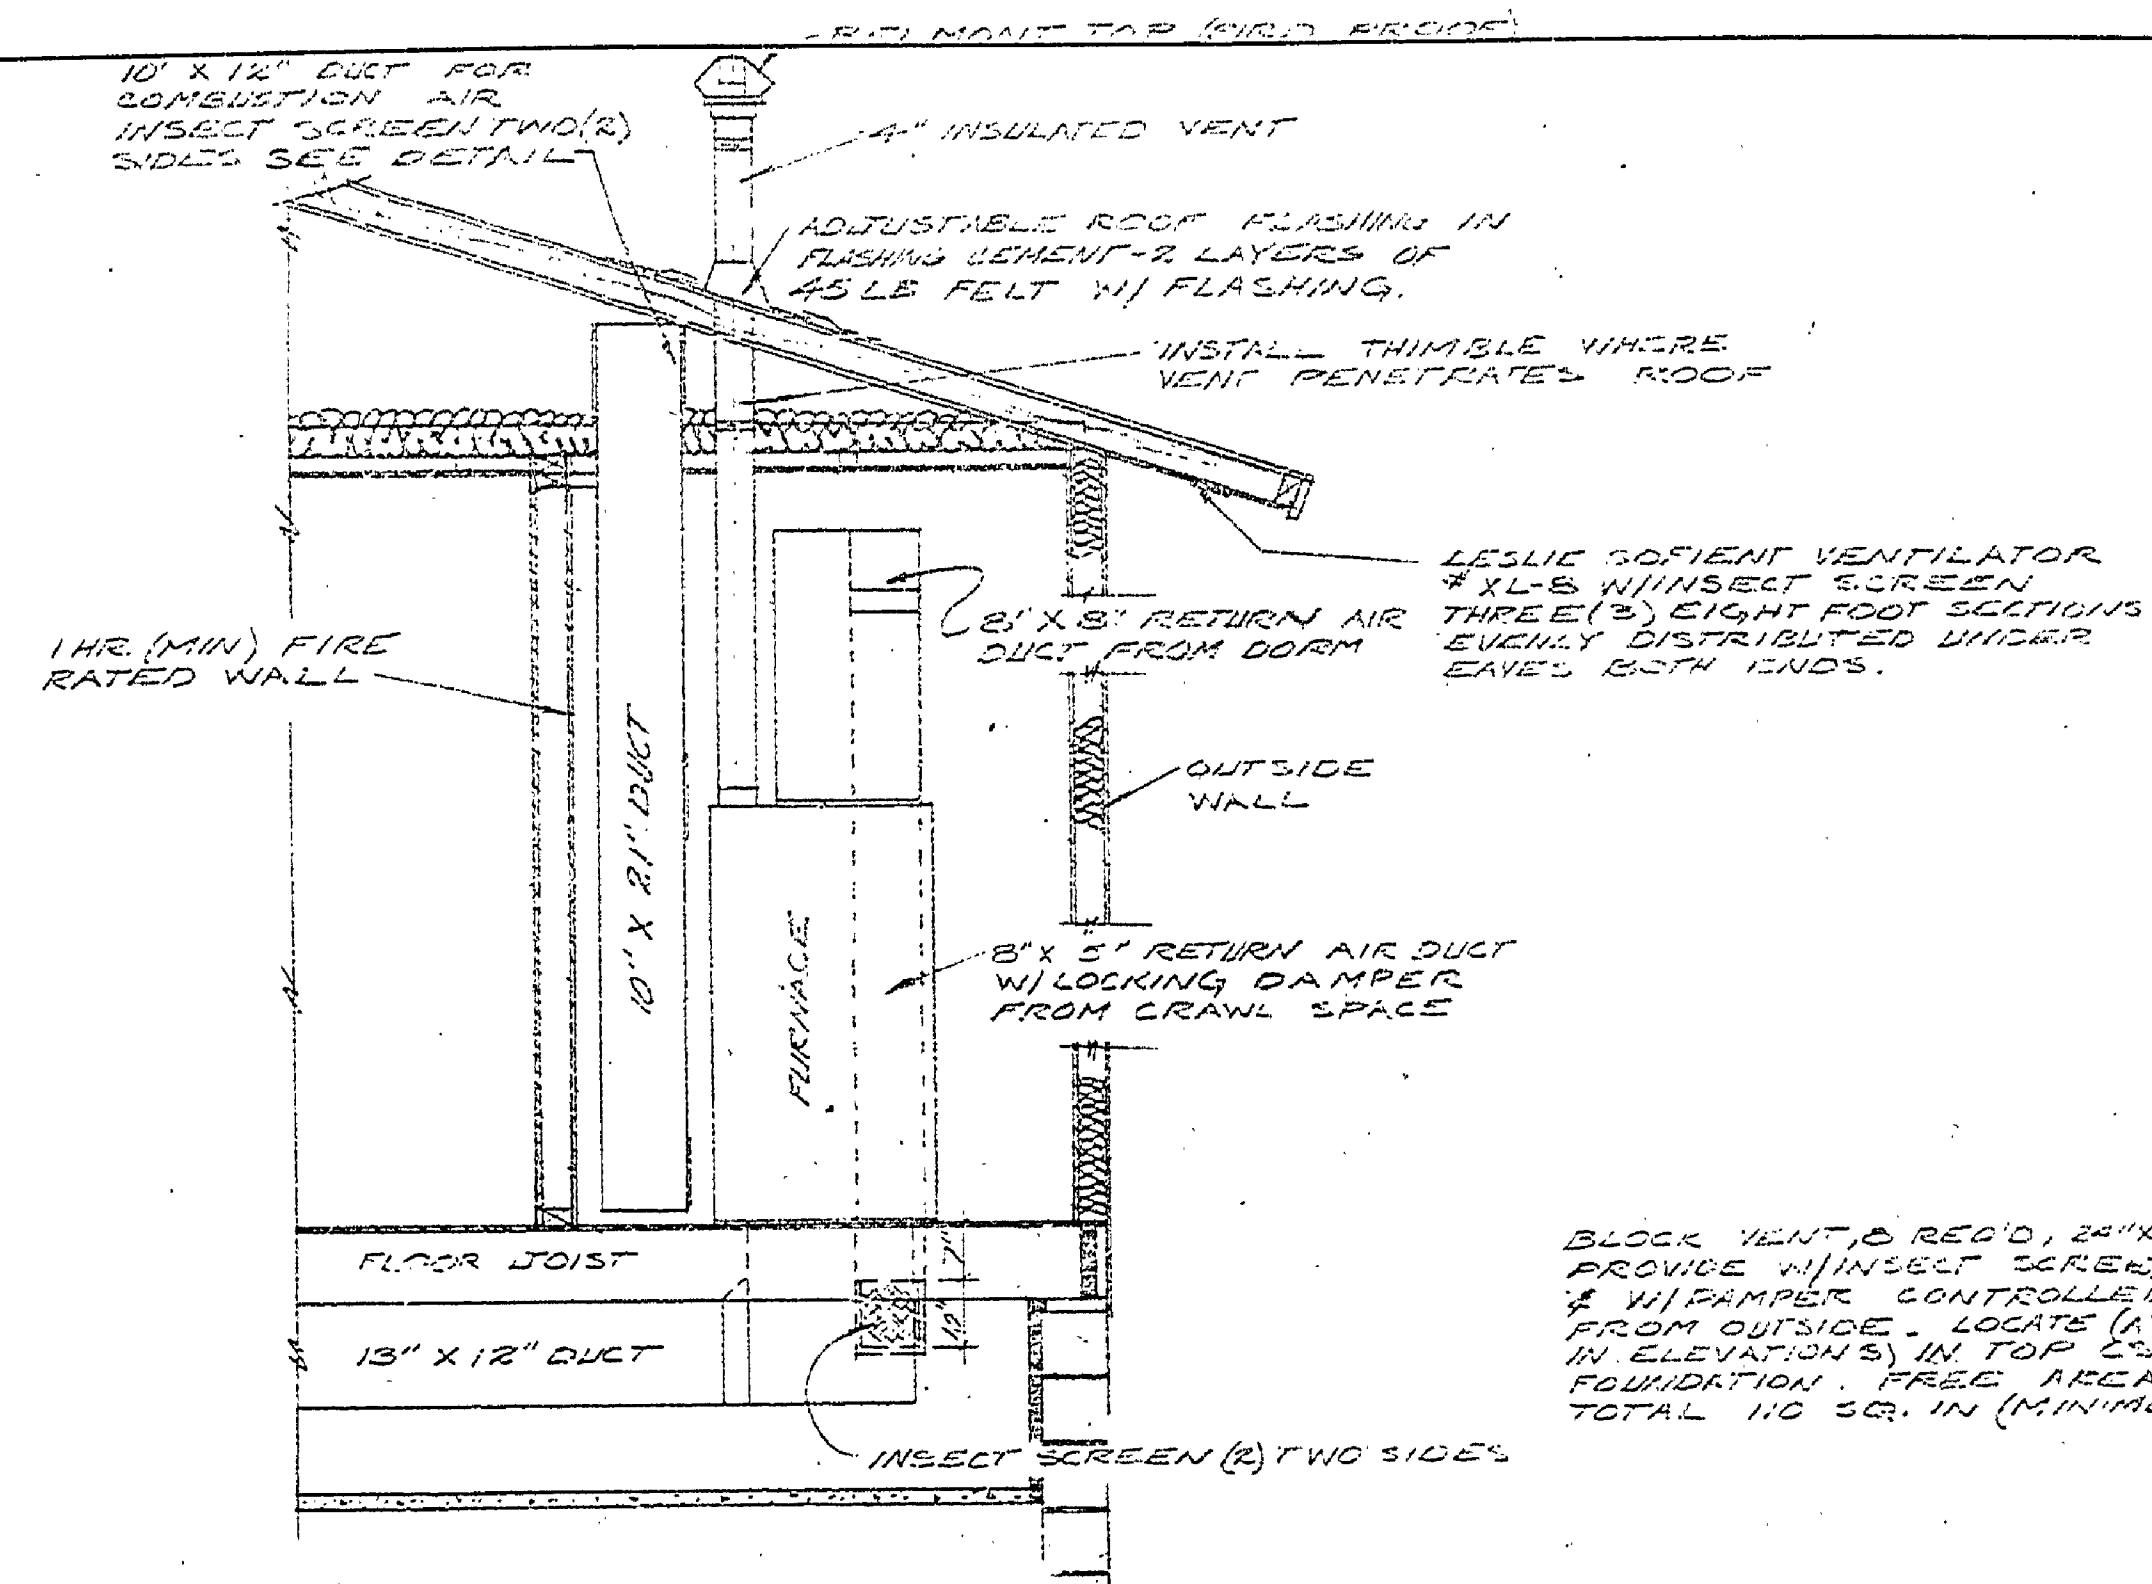 BELMONT TOP (BIRD PROOF)
10" X 12" DUCT FOR
COMBUSTION AIR
INSECT SCREEN TWO(2)
SIDES SEE DETAIL
4" INSULATED VENT
ADJUSTABLE ROOF FLASHING IN
FLASHING CEMENT-2 LAYERS OF
45 LB FELT W/ FLASHING.
INSTALL THIMBLE WHERE
VENT PENETRATES ROOF
LESLIE SOFIENT VENTILATOR
# XL-8 W/INSECT SCREEN
THREE(3) EIGHT FOOT SECTIONS
EVENLY DISTRIBUTED UNDER
EAVES BOTH ENDS.
8" X 8" RETURN AIR
DUCT FROM DORM
1 HR. (MIN) FIRE
RATED WALL
10" X 21" DUCT
OUTSIDE
WALL
FURNACE
8" X 5" RETURN AIR DUCT
W/ LOCKING DAMPER
FROM CRAWL SPACE
FLOOR JOIST
7"
12"
13" X 12" DUCT
INSECT SCREEN (2) TWO SIDES
BLOCK VENT, 8 REQ'D, 24"X
PROVIDE W/INSECT SCREE
& W/ DAMPER CONTROLLE
FROM OUTSIDE. LOCATE
IN ELEVATIONS) IN TOP
FOUNDATION. FREE AREA
TOTAL 110 SQ. IN (MINIM